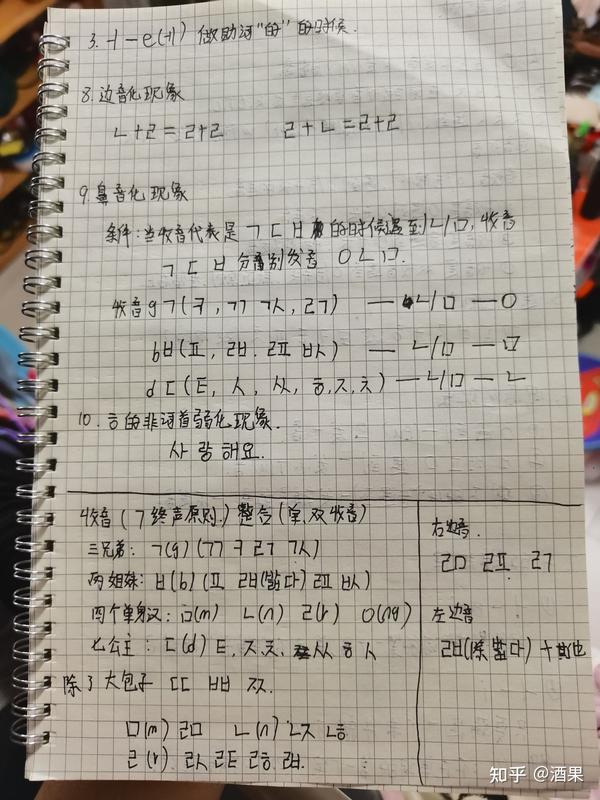 3. ㅢ — e(ㅔ) 做助词“的”的时候.
8. 边音化现象
ㄴ+ㄹ=ㄹ+ㄹ ㄹ+ㄴ=ㄹ+ㄹ
9. 鼻音化现象
条件: 当收音代表是 ㄱ ㄷ ㅂ 的时候遇到ㄴ/ㅁ, 收音
ㄱ ㄷ ㅂ 分别发音 ㅇ ㄴ ㅁ.
收音 g ㄱ (ㅋ, ㄲ ㄳ, ㄺ) — ㄴ/ㅁ — ㅇ
b ㅂ (ㅍ, ㄼ. ㄿ ㅄ) — ㄴ/ㅁ — ㅁ
d ㄷ (ㅌ, ㅅ, ㅆ, ㅎ, ㅈ, ㅊ) — ㄴ/ㅁ — ㄴ
10. ㅎ的非词首弱化现象.
사랑해요.
收音 (7终声原则.) 整合 (单、双收音)
三兄弟: ㄱ(g) (ㄲ ㅋ ㄺ ㄳ)
两姐妹: ㅂ(b) (ㅍ ㄼ(밟다) ㄿ ㅄ)
四个单身汉: ㅁ(m) ㄴ(n) ㄹ(r) ㅇ(ng)
七公主: ㄷ(d) ㅌ, ㅈ ㅊ, ㅆ ㅎ ㅅ
除了大包子 ㄸ ㅃ ㅉ.
ㅁ(m) ㄻ ㄴ(n) ㄵ ㄶ
ㄹ(r) ㄽ ㄾ ㅀ ㄼ.
右边音.
ㄻ ㄿ ㄺ
左边音
ㄼ(除 밟다) + 其他
知乎 @酒果